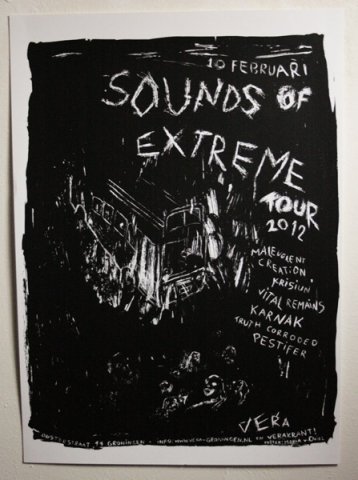 10 FEBRUARI
SOUNDS OF
EXTREME
TOUR
2012
MALEVOLENT
CREATION
KRISIUN
VITAL REMAINS
KARNAK
TRUTH CORRODED
PESTIFER
VERA
OOSTERSTRAAT 44 GRONINGEN · INFO: WWW.VERA-GRONINGEN.NL EN VERAKRANT!